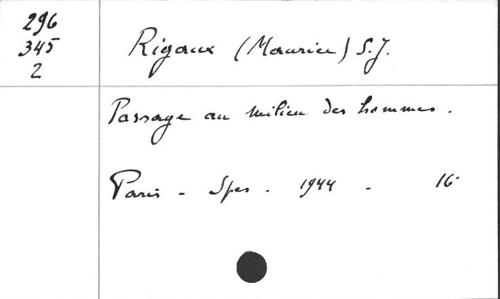 296
345
2
Rigaux (Maurice) S.J.
Passage au milieu des hommes.
Paris - Spes. 1944 - 16°